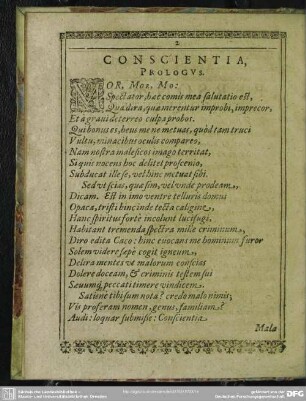 2
CONSCIENTIA,
PROLOGVS.
MOR, Mor, Mo:
Spectator, hæc comis mea salutatio est,
Qua dira, quam irentur improbi, imprecor,
Et à gravi deterreo culpa probos.
Qui bonus es, heus me ne metuas, quòd tam truci
Vultu, minacibus oculis compareo,
Nam nostra maleficos imago territat,
Si quis nocens hoc delitet proscenio,
Subducat ille se, vel hinc metuat sibi.
Sed ut scias, quæ sim, vel unde prodeam,
Dicam. Est in imo ventre telluris domus
Opaca, tristi hinc inde tecta caligine,
Hanc spiritus fortè incolunt lucifugi,
Habitant tremenda spectra mille criminum,
Diro edita Chao: hinc evocans me hominum furor
Solem videre sæpè cogit igneum,
Delira mentes ut malorum conscias
Dolere doceam, & criminis testem sui
Sævumq; peccati timere vindicem.
Satin&#x27;e tibi sum nota? credo malo nimis,
Vis proferam nomen, genus, familiam?
Audi: loquar submissè: Conscientia
Mala